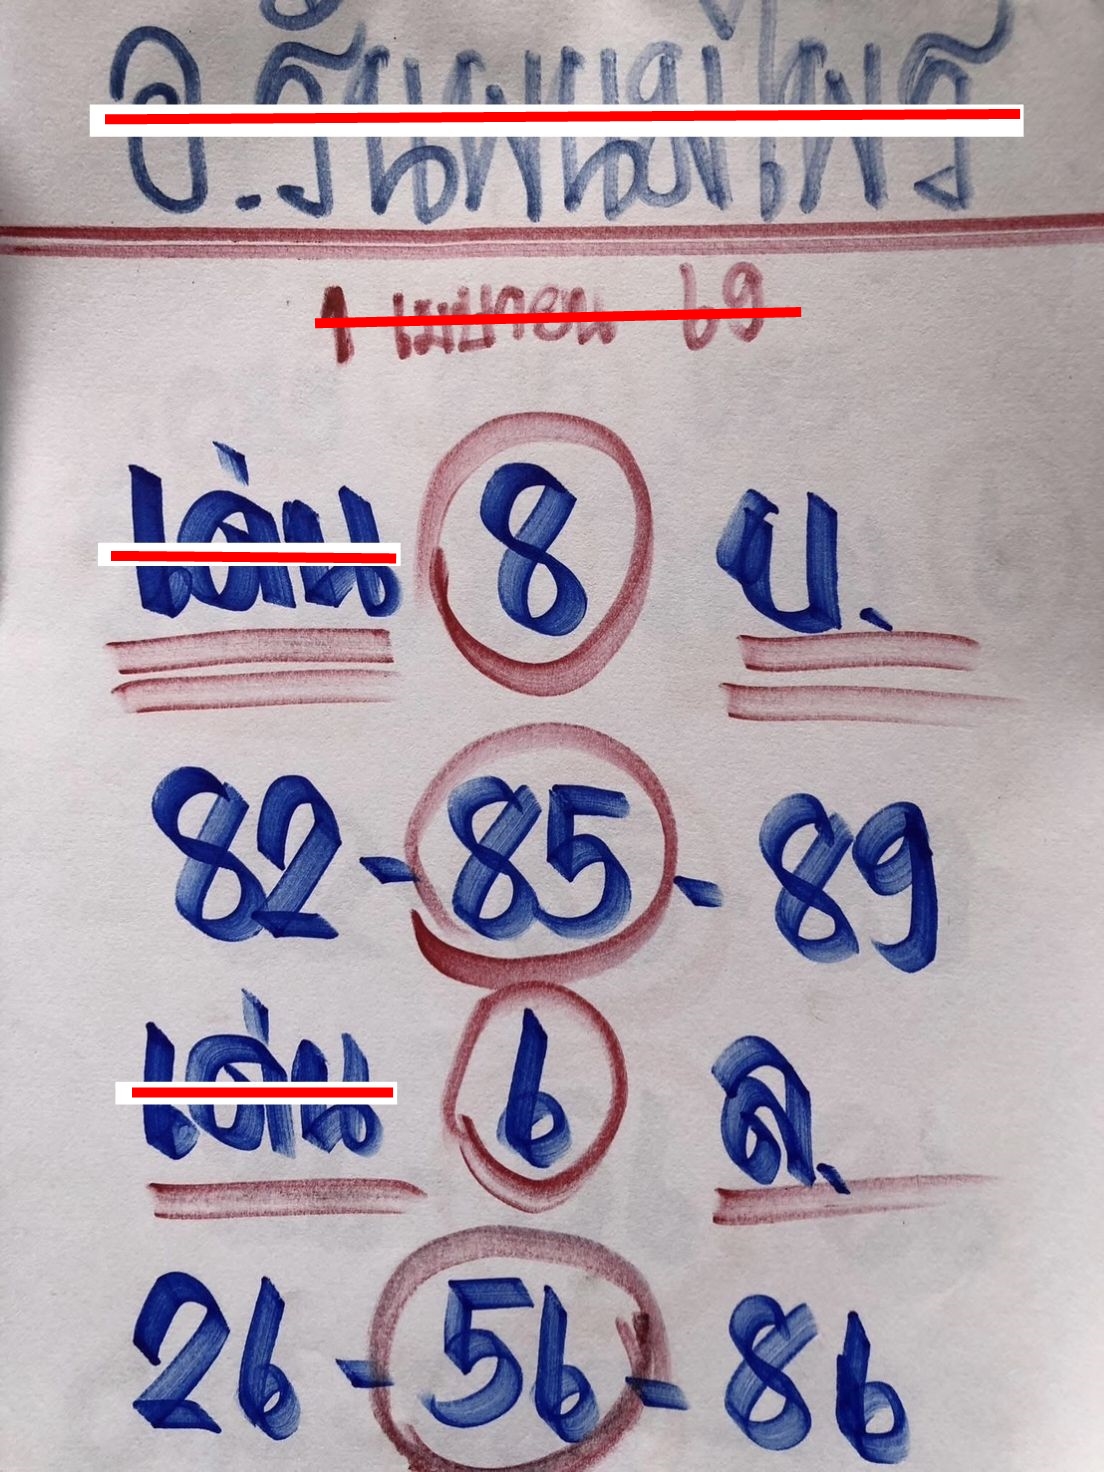 อ.รันพนมไพร
1 เมษายน 69
เด่น 8 บ.
82-85-89
เด่น 6 ล.
26-56-86